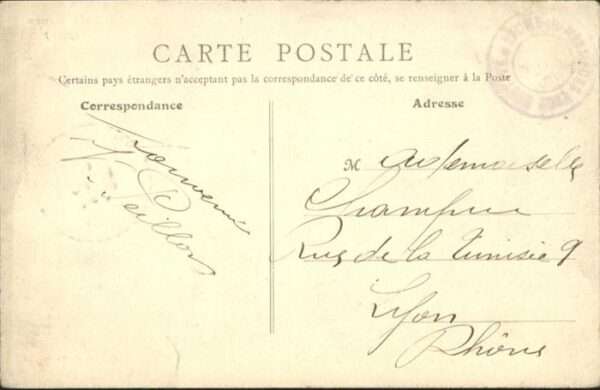 CARTE POSTALE
Certains pays étrangers n'acceptant pas la correspondance de ce côté, se renseigner à la Poste
Correspondance
Adresse
Souvenir
Peillon
Mademoiselle
Rue de la Tunisie 9
Lyon
Rhône